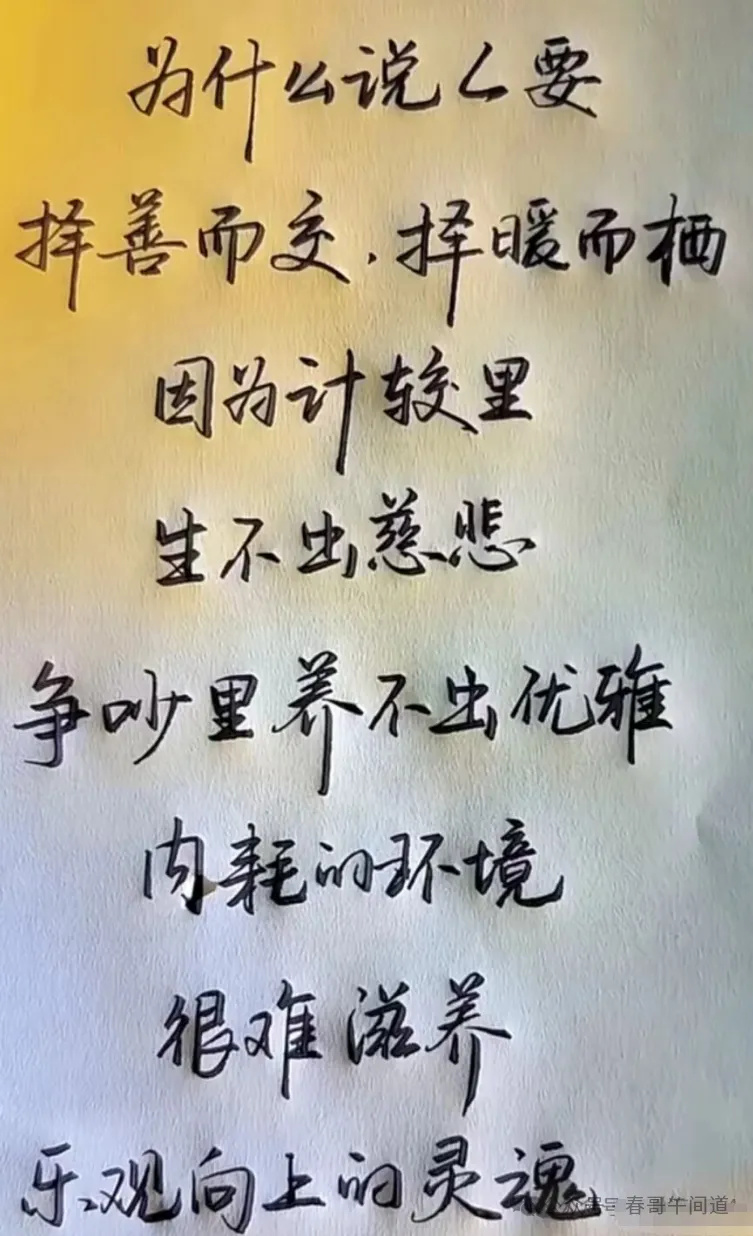 为什么说人要
择善而交,择暖而栖
因为计较里
生不出慈悲
争吵里养不出优雅
内耗的环境
很难滋养
乐观向上的灵魂
公众号 春哥午间道